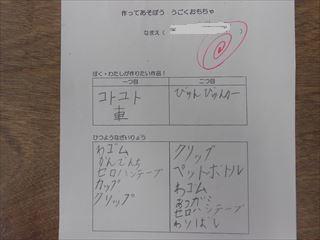 作ってあそぼう うごくおもちゃ
なまえ( )
ぼく・わたしが作りたい作品!
一つ目
二つ目
コトコト
車
びゅんびゅんカー
ひつようなざいりょう
わゴム
かんでんち
セロハンテープ
カップ
クリップ
クリップ
ペットボトル
わゴム
あつがみ
セロハンテープ
わりばし